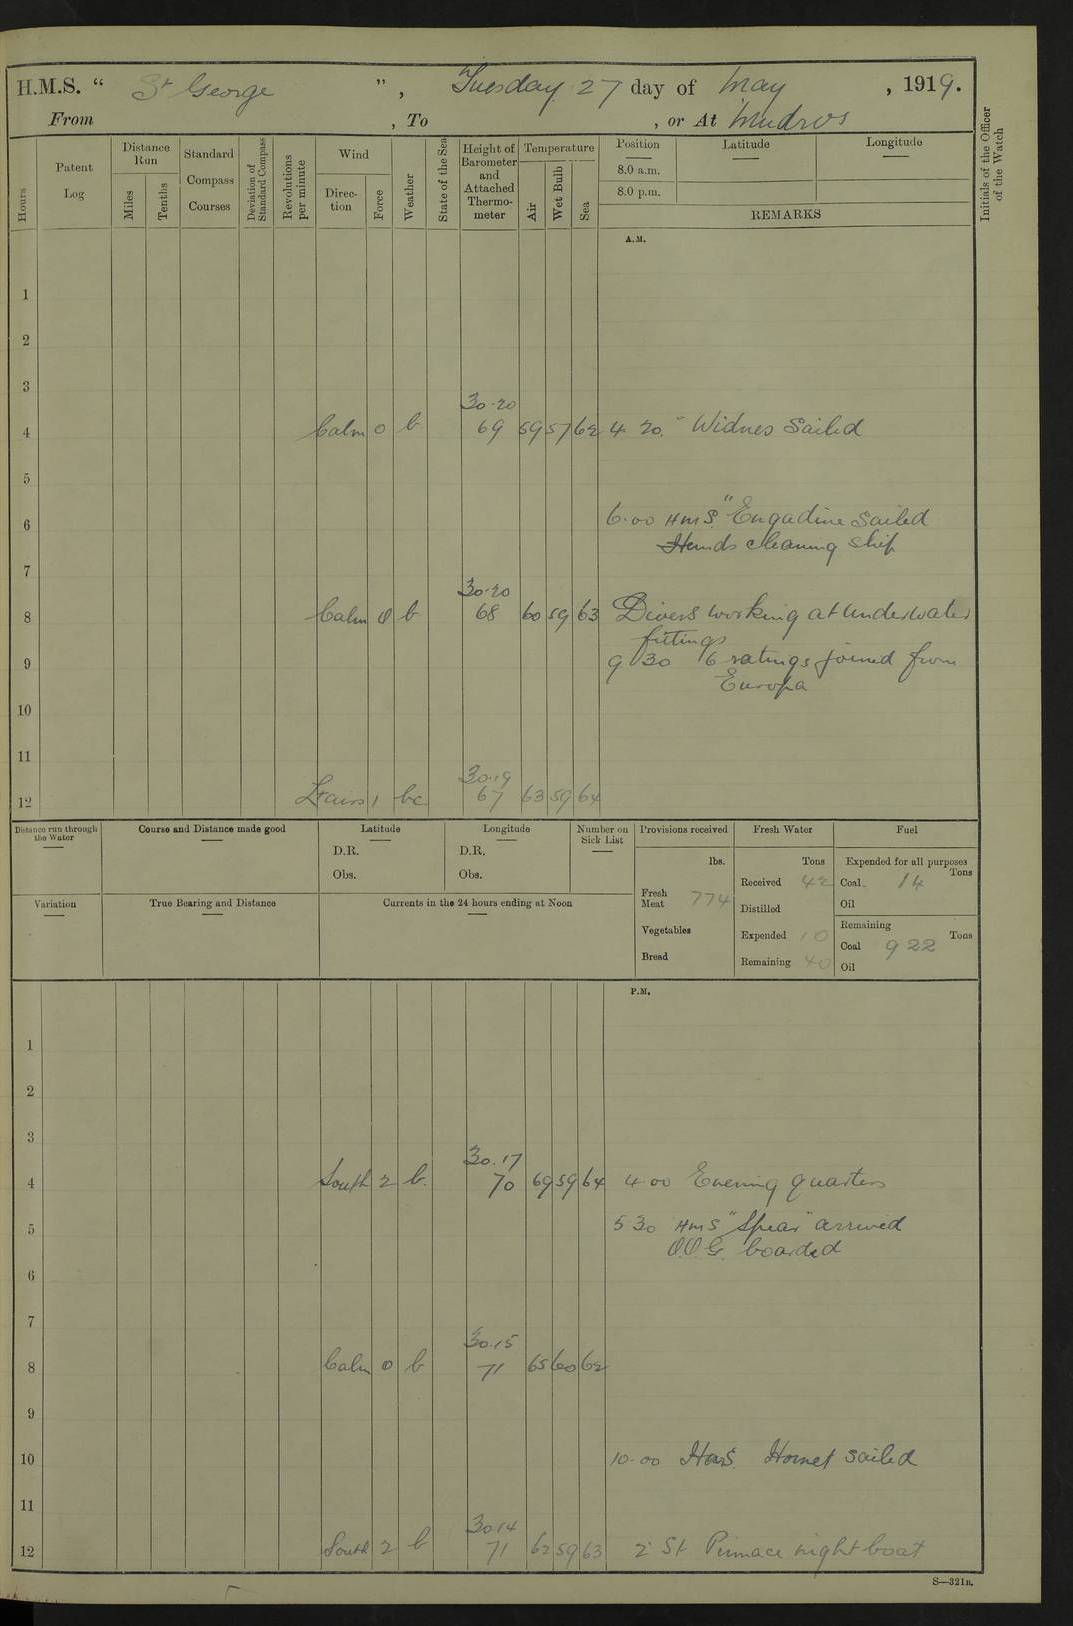 H.M.S. “ St George ” , Tuesday 27 day of May , 1919.
From , To , or At Mudros
Hours
Patent Log
Distance Run
Miles
Tenths
Standard Compass Courses
Deviation of Standard Compass
Revolutions per minute
Wind
Direction
Force
Weather
State of the Sea
Height of Barometer and Attached Thermometer
Temperature
Air
Wet Bulb
Sea
Position
Latitude
Longitude
8.0 a.m.
8.0 p.m.
REMARKS
Initials of the Officer of the Watch
A.M.
1
2
3
30.20
4 Calm 0 b 69 59 57 62 4 20. " Widnes Sailed
5
6 6.00 HMS. "Engadine Sailed
Hands cleaning Ship
7
30.20
8 Calm 0 b 68 60 59 63 Divers working at underwater
fittings
9 9 30 6 ratings joined from
Europa
10
11
30.19
12 Lt airs 1 bc. 67 63 59 64
Distance run through the Water
Course and Distance made good
Latitude
D.R.
Obs.
Longitude
D.R.
Obs.
Number on Sick List
Provisions received
lbs.
Fresh Meat 774
Vegetables
Bread
Fresh Water
Tons
Received 42
Distilled
Expended 10
Remaining 40
Fuel
Expended for all purposes
Tons
Coal 14
Oil
Remaining
Tons
Coal 922
Oil
Variation
True Bearing and Distance
Currents in the 24 hours ending at Noon
P.M.
1
2
3
30.17
4 South 2 b. 70 69 59 64 4 00 Evening quarters
5 5 30 HMS "Spear" arrived
O.O.G. boarded
6
7
30.15
8 Calm 0 b 71 65 60 62
9
10 10.00 HMS. Hornet Sailed
11
30 14
12 South 2 b 71 62 59 63 2 St Pinnace night boat
S—321B.